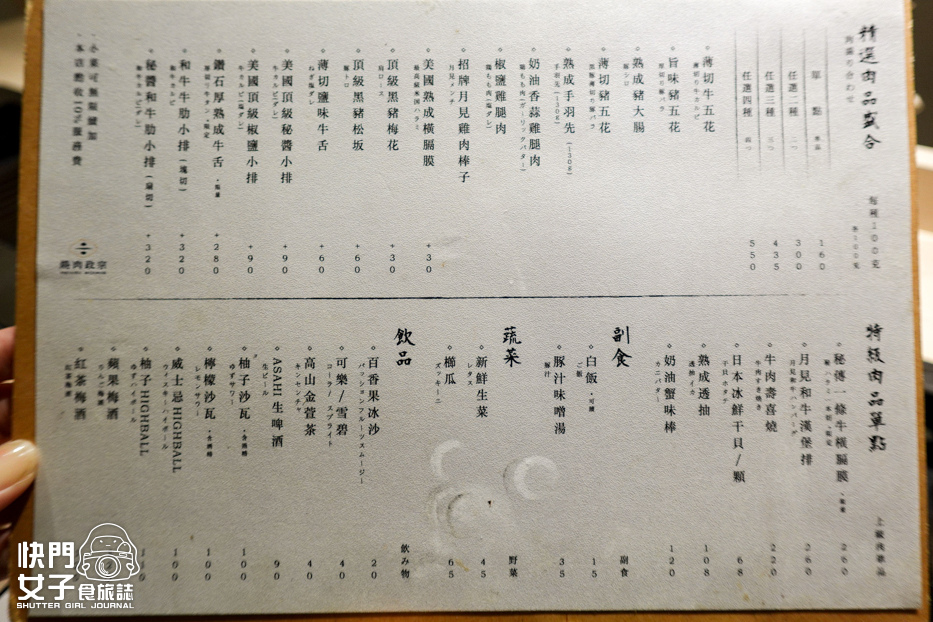 精選肉品盛合
肉盛り合わせ
每種100克
各100克
單點 単品 160
任選二種 二つ 300
任選三種 三つ 435
任選四種 四つ 550
薄切牛五花
薄切り牛カルビ
旨味豬五花
厚切り豚バラ
熟成豬大腸
豚シロ
薄切豬五花
黒豚薄切り豚バラ
熟成手羽先(130g)
手羽先(130g)
奶油香蒜雞腿肉
鶏もも肉(ガーリックバター)
椒鹽雞腿肉
鶏もも肉(塩ダレ)
招牌月見雞肉棒子
月見メンチ
美國熟成橫膈膜 +30
最高級米国ハラミ
頂級黑豬梅花 +30
肩ロース
頂級黑豬松坂 +60
豚トロ
薄切鹽味牛舌 +60
ねぎ塩ダレ
美國頂級秘醬小排 +90
牛カルビ(ダレ)
美國頂級椒鹽小排 +90
牛カルビ(塩ダレ)
鑽石厚熟成牛舌・限量 +280
厚切り牛タン・限定
和牛牛肋小排(塊切) +320
和牛カルビ
秘醬和牛肋小排(扇切) +320
和牛カルビ(ダレ)
・小菜可無限續加
・本店酌收10%服務費
燒肉政宗
特級肉品單點
上級肉単品
秘傳一條牛橫膈膜・限量 260
月見和牛漢堡排 260
月見和牛ハンバーグ
牛肉壽喜燒 220
牛肉すき焼き
日本冰鮮干貝/顆 68
干貝 ホタテ
熟成透抽 108
透抽イカ
奶油蟹味棒 120
カニバター
副食
副食
白飯・可續 15
ご飯
豚汁味噌湯 35
豚汁
蔬菜
野菜
新鮮生菜 45
レタス
櫛瓜 65
ズッキーニ
飲品
飲み物
百香果冰沙 20
パッションフルーツスムージー
可樂/雪碧 40
コーラ/スプライト
高山金萱茶 40
キンセンチャ
ASAHI 生啤酒 90
生ビール
柚子沙瓦・含酒精 100
ゆずサワー
檸檬沙瓦・含酒精 100
レモンサワー
威士忌HIGHBALL 100
ウィスキーハイボール
柚子HIGHBALL
ゆずハイボール
蘋果梅酒
りんご梅酒
紅茶梅酒
紅茶梅酒
快門女子食旅誌
SHUTTER GIRL JOURNAL